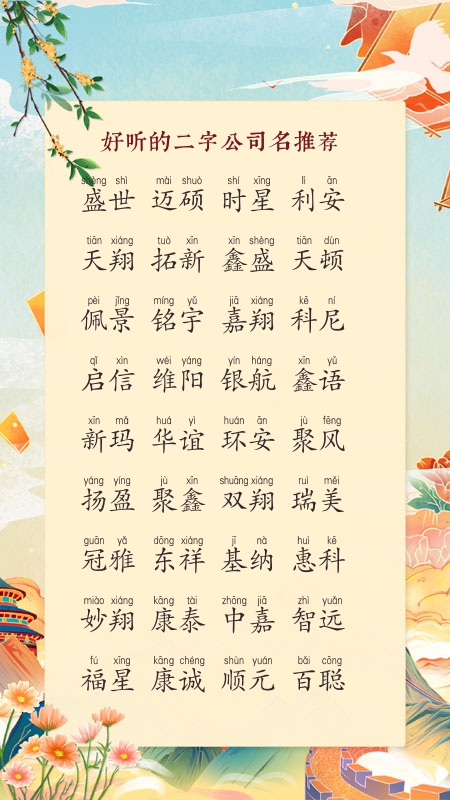 好听的二字公司名推荐
shèng shì mài shuò shí xīng lì ān
盛世 迈硕 时星 利安
tiān xiáng tuò xīn xīn shèng tiān dùn
天翔 拓新 鑫盛 天顿
pèi jǐng míng yǔ jiā xiáng kē ní
佩景 铭宇 嘉翔 科尼
qǐ xìn wéi yáng yín háng xīn yǔ
启信 维阳 银航 鑫语
xīn mǎ huá yì huán ān jù fēng
新玛 华谊 环安 聚风
yáng yíng jù xīn shuāng xiáng ruì měi
扬盈 聚鑫 双翔 瑞美
guān yǎ dōng xiáng jī nà huì kē
冠雅 东祥 基纳 惠科
miào xiáng kāng tài zhōng jiā zhì yuǎn
妙翔 康泰 中嘉 智远
fú xīng kāng chéng shùn yuán bǎi cōng
福星 康诚 顺元 百聪